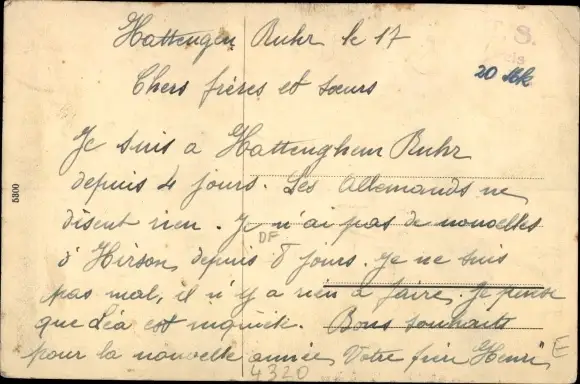 Hattengen Ruhr le 17
S.
20 Mk
Chers frères et sœurs
Je suis a Hattengheur Ruhr
depuis 4 jours. Les Allemands ne
disent rien. Je n'ai pas de nouvelles
d'Hirson depuis 8 jours. Je ne suis
pas mal, il n'y a rien a faire. Je pense
que Léa est inquiète. Bons souhaits
pour la nouvelle année, Votre frère Henri
5300
DF
4320
E